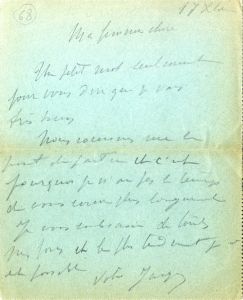 68
17 X
Ma femme chérie
Un petit mot seulement
pour vous dire que je vas
très bien
Nous sommes sur le
point de partir et c'est
pourquoi je n'ai pas le temps
de vous écrire plus longuement
Je vous embrasse de toutes
mes forces et le plus tendrement
possible
Votre